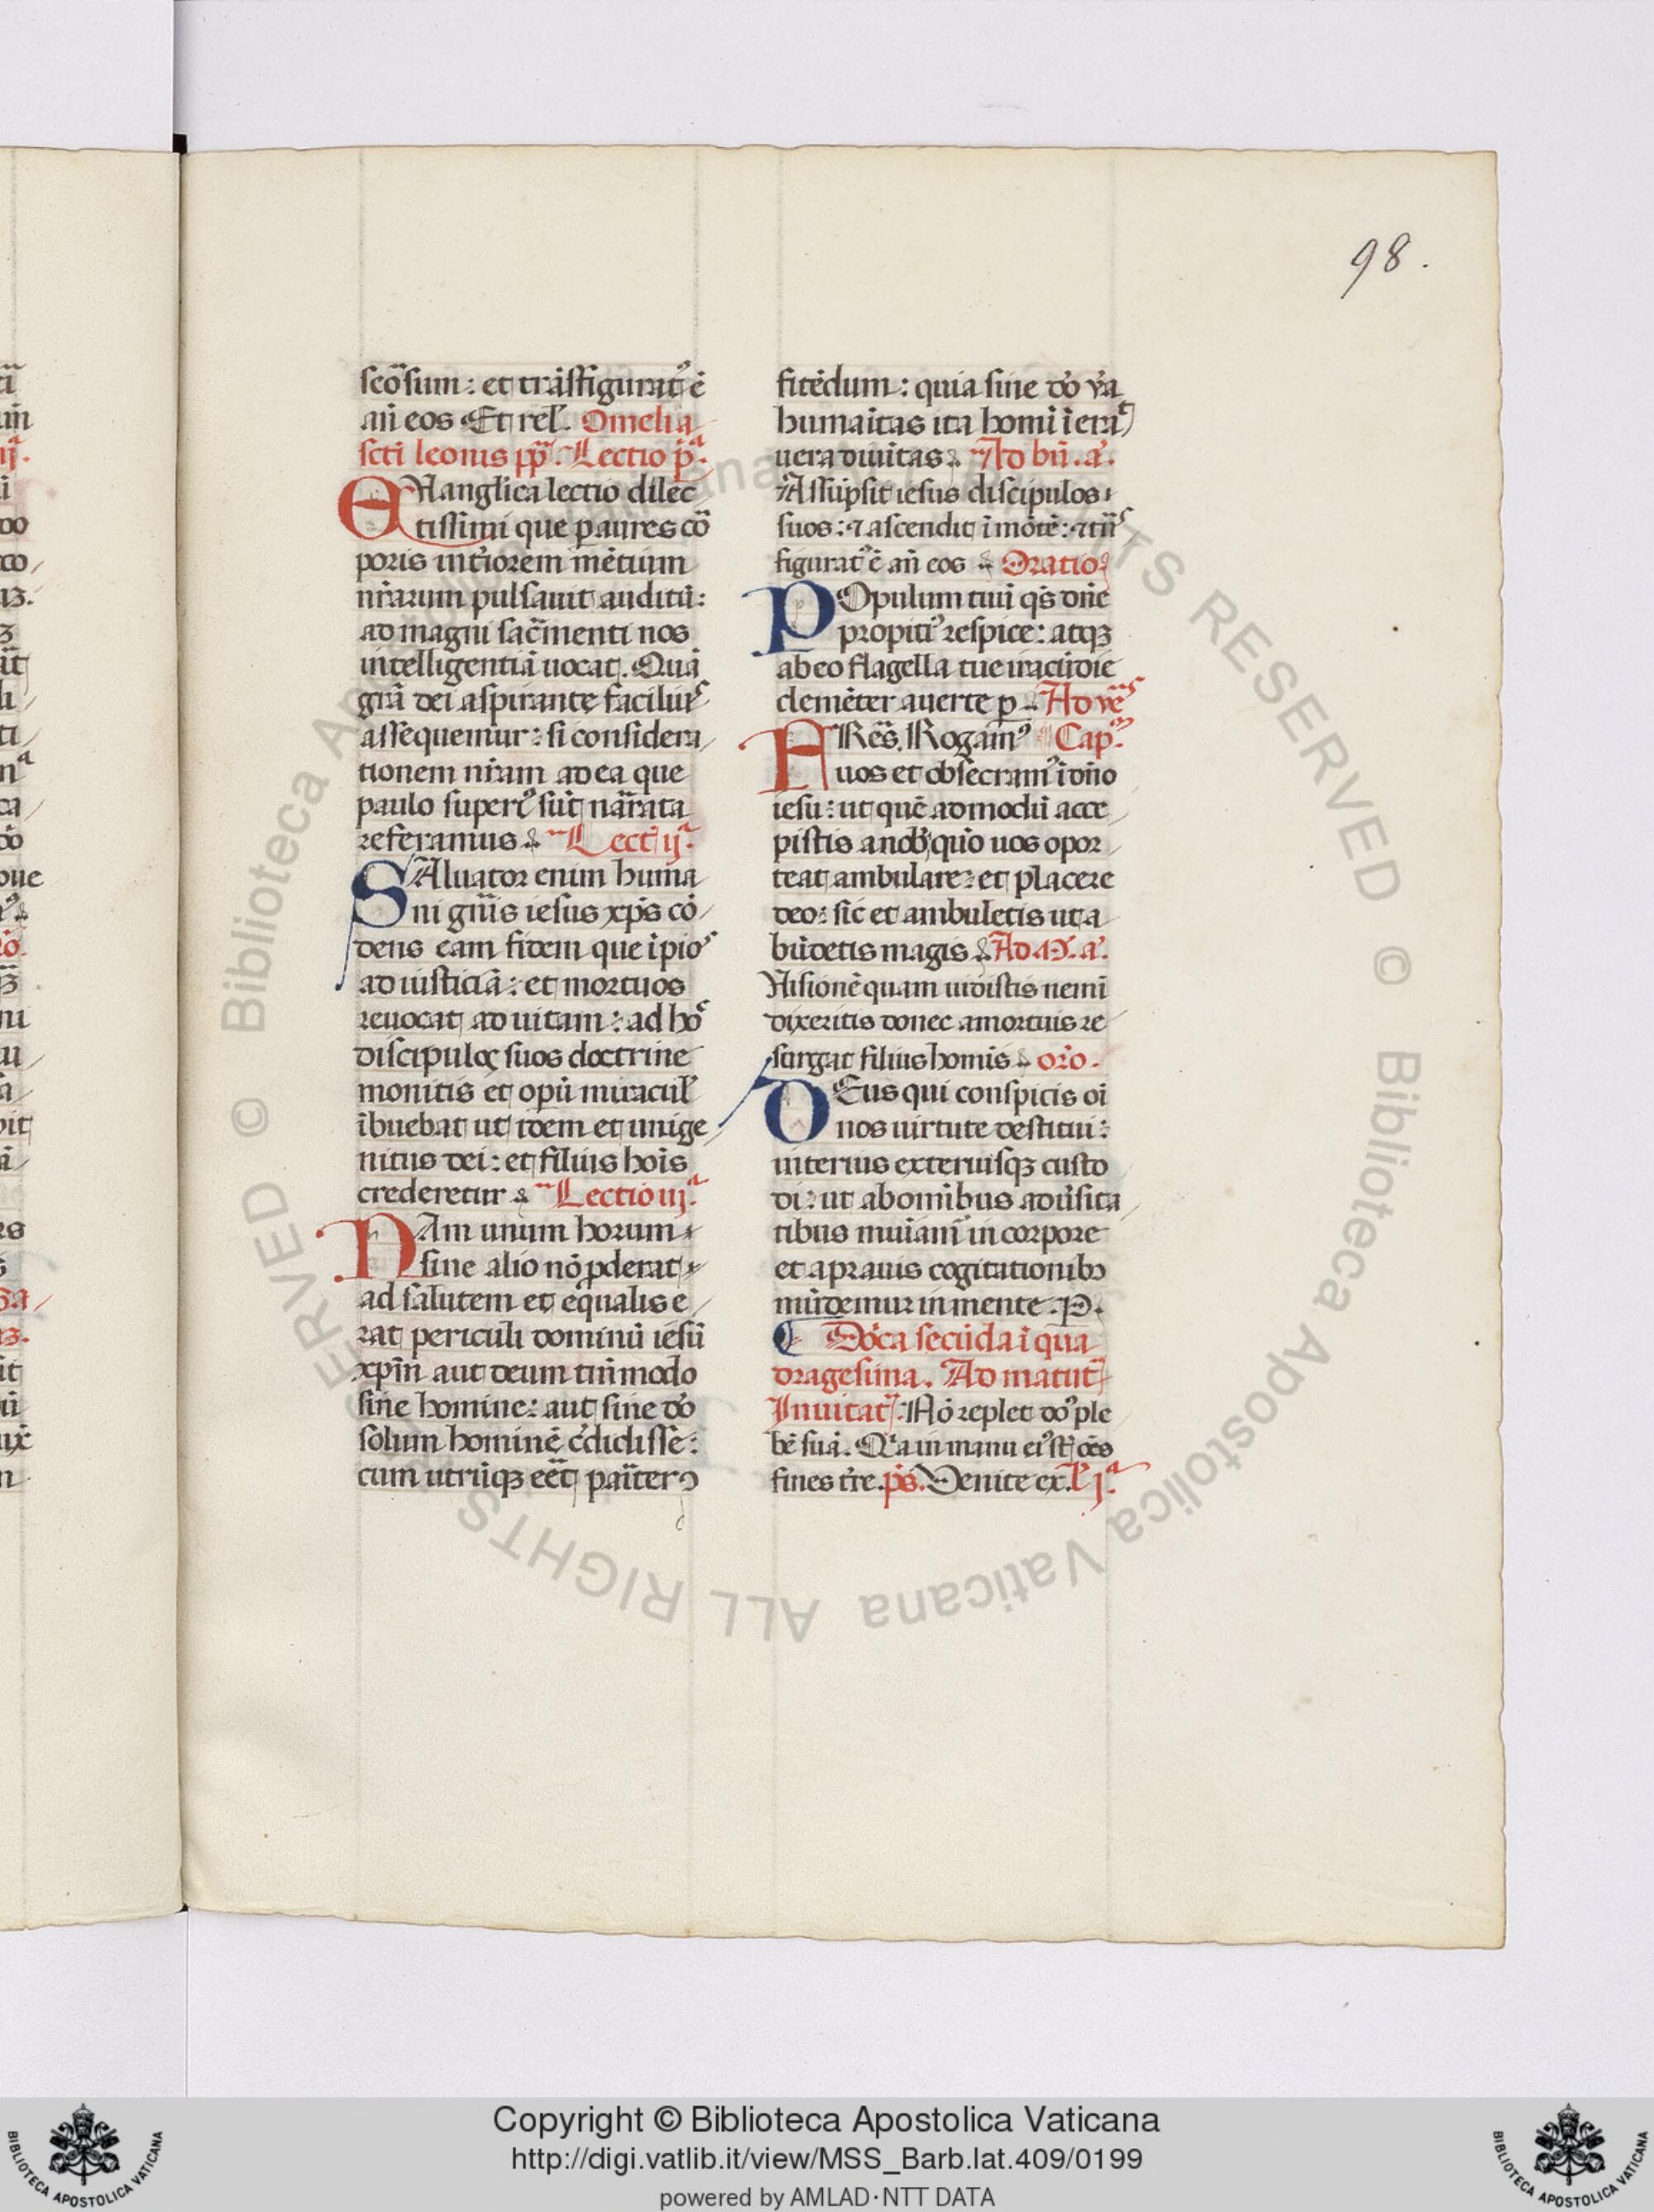 98.
scõsum: et trãsfigurat᷒ ẽ
añ eos Et rel̃. Omelia
scti leonis pp̃. Lectio p.ª
EUangl̃ica lectio dilec
tissimi que p aures cõ
poris int̓iorem mẽtium
nr̃arum pulsauit auditũ:
ad magni sac̃menti nos
intelligentiã uocat. Quã
gr̃a dei aspirante facilius
assequemur: si considera
tionem nr̃am ad ea que
paulo superi᷒ sũt nar̃rata
referamus Lect̃ ij.ª
SAluator enim huma
ni gñis iesus xp̃s cõ
dens eam fidem que ĩpios
ad iusticiã: et mortuos
reuocat ad uitam: ad hoc
discipulos suos doctrine
monitis et opũ miracul̃
ĩbuebat ut idem et unige
nitus dei: et filius hoĩs
crederetur Lectio iij.ª
NAm unum horum
sine alio nõ ꝓderat
ad salutem et equalis e
rat periculi dominũ iesũ
xp̃m aut deum tm̃modo
sine homine: aut sine dõ
solum hominẽ c̓didisse:
cum utrũqꝫ eẽt par̃iter ꝯ
fitẽdum: quia sine dõ v̓a
humaĩtas ita homĩ ĩerat
uera diuitas Ad bñ. a.
Assũpsit iesus discipulos
suos: ⁊ ascendit ĩ mõtẽ: ⁊ trñs
figurat᷒ ẽ añ eos Oratio
POpulum tuũ qs̃ dñe
propiti᷒ respice: atqꝫ
ab eo flagella tue iracũdie
clemẽter auerte p Ad ves
FRẽs. Rogam᷒ Cap.m
uos et obsecram᷒ ĩ dño
iesu: ut quẽ admodũ acce
pistis a nob̾ quõ uos opor
teat ambulare: et placere
deo: sic et ambuletis ut a
bũdetis magis Ad M. a.
Uisionẽ quam uidistis nemĩ
dixeritis donec a mortuis re
surgat filius homĩs oro.
DEus qui conspicis oĩ
nos uirtute destitui:
interius exteriusqꝫ custo
di: ut ab omĩbus adũsita
tibus muiam̃ in corpore
et a prauis cogitationibꝫ
mũdemur in mente. P.
Dõca secũda ĩ qua
dragesima. Ad matut̃
Inuitat̃. Nõ replet do᷒ ple
bẽ suã. Qa in manu ei᷒ st̃ oẽs
fines t̓re. ps̃. Venite ex. l̃ j.ª
Copyright © Biblioteca Apostolica Vaticana
http://digi.vatlib.it/view/MSS_Barb.lat.409/0199
powered by AMLAD·NTT DATA
BIBLIOTECA APOSTOLICA VATICANA
BIBLIOTECA APOSTOLICA VATICANA